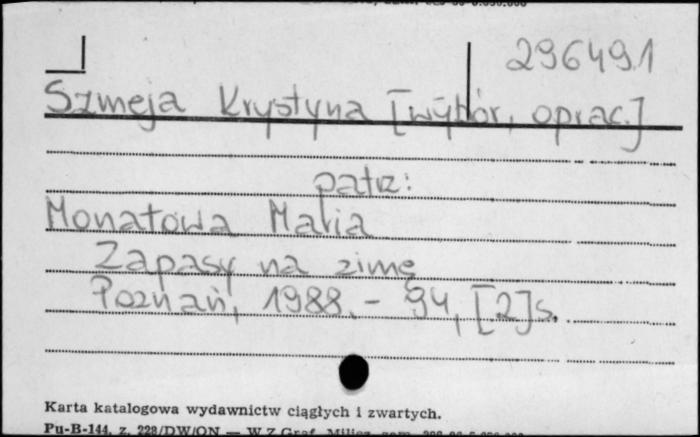 296491
Szmeja Krystyna [wybór, oprac.]
patrz:
Monatowa Maria
Zapasy na zimę
Poznań, 1988. - 94, [2] s.
Karta katalogowa wydawnictw ciągłych i zwartych.
Pu-B-144, z. 228/DW/ON — W.Z.Graf. Milicz, zam.